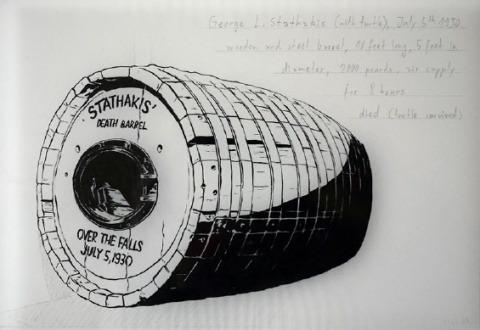 George L. Stathakis (with turtle), July 5th 1930
wooden and steel barrel, 10 feet long, 5 feet in
diameter, 2000 pounds, air supply
for 8 hours
died (turtle survived)
STATHAKIS'
DEATH BARREL
OVER THE FALLS
JULY 5, 1930